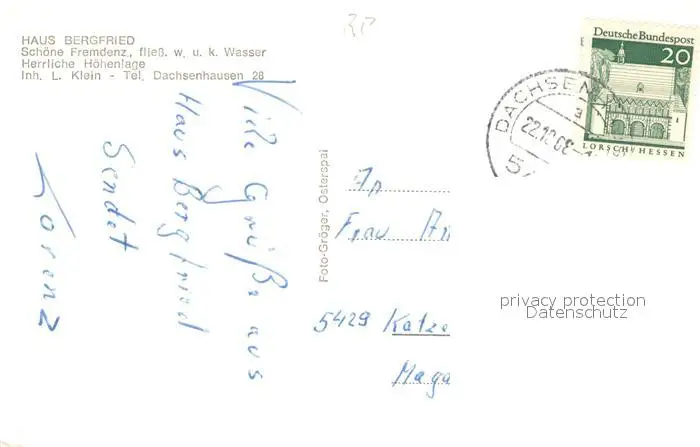 HAUS BERGFRIED
Schöne Fremdenz., fließ. w. u. k. Wasser
Herrliche Höhenlage
Inh. L. Klein - Tel. Dachsenhausen 28
Viele Grüße aus
Haus Bergfried
Sendet
Lorenz
Foto-Gröger, Osterspai
Deutsche Bundespost
20
LORSCH/HESSEN
DACHSEN
22.10.68
An
Frau
5429 Katze
privacy protection
Datenschutz